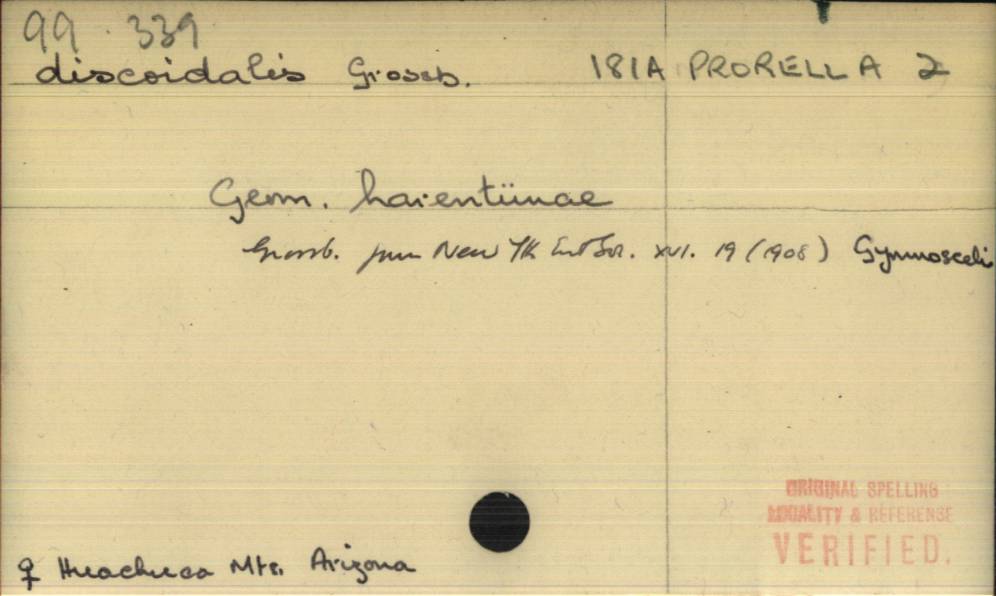 99 . 339
discoidalis Grossb. 181A PRORELLA 2
Geom. larentiinae
Grossb. Journ New Yk Ent Soc. XVI. 19 (1908) Gymnosceli
ORIGINAL SPELLING
LOCALITY & REFERENCE
VERIFIED.
♀ Huachuca Mts. Arizona